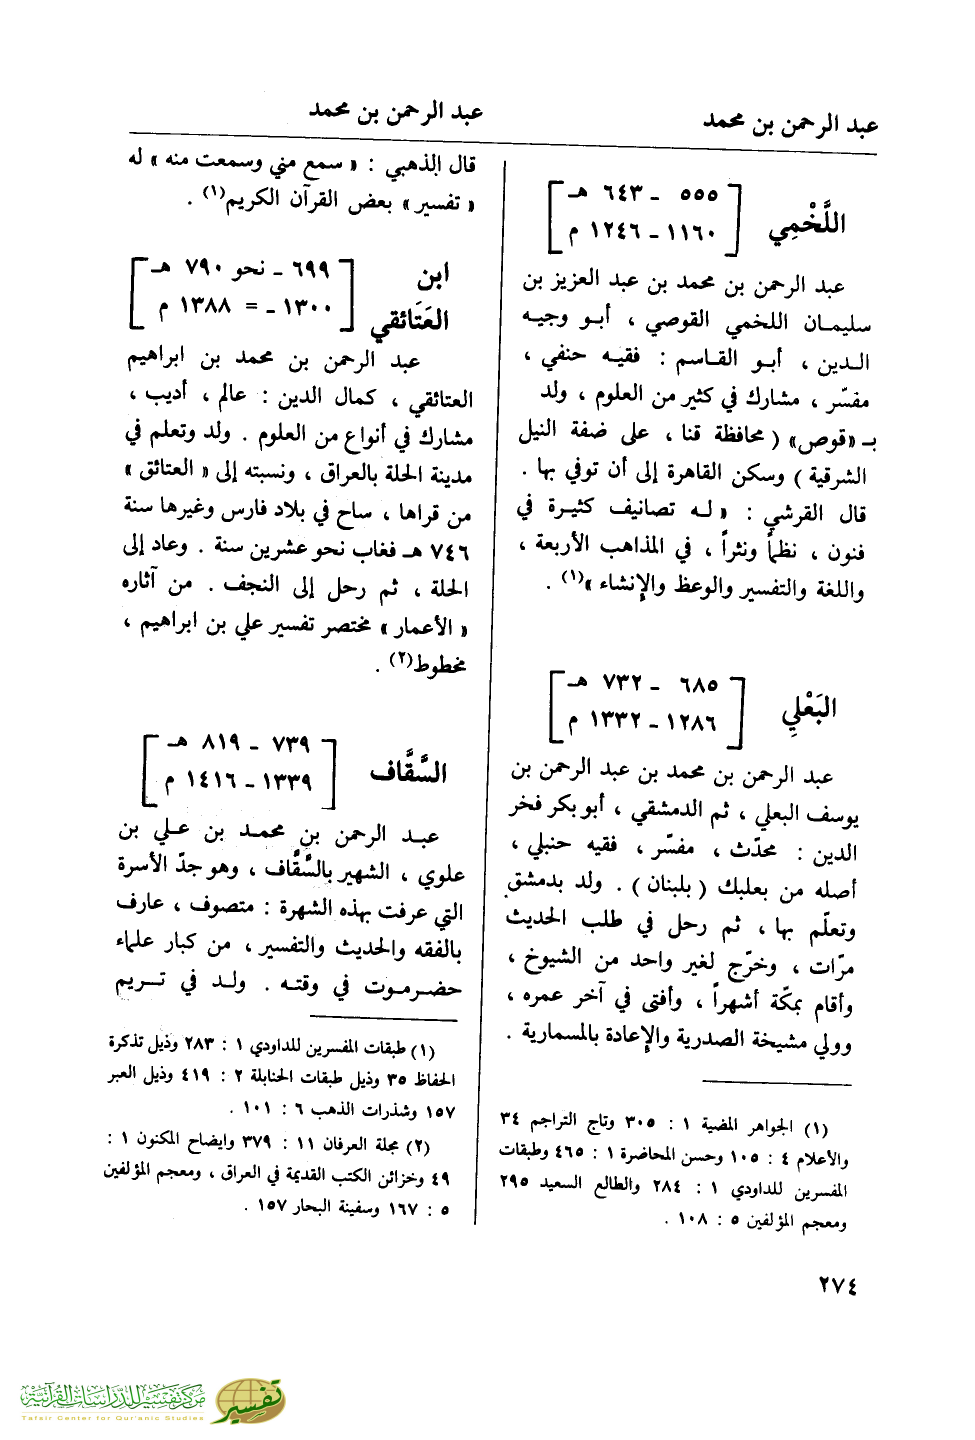 عبد الرحمن بن محمد
عبد الرحمن بن محمد
اللَّخْمِي
٥٥٥ - ٦٤٣ هـ
١١٦٠ - ١٢٤٦ م
عبد الرحمن بن محمد بن عبد العزيز بن
سليمان اللخمي القوصي ، أبو وجيه
الدين ، أبو القاسم : فقيه حنفي ،
مفسّر ، مشارك في كثير من العلوم ، ولد
بـ «قوص» ( محافظة قنا ، على ضفة النيل
الشرقية ) وسكن القاهرة إلى أن توفي بها .
قال القرشي : « له تصانيف كثيرة في
فنون ، نظماً ونثراً ، في المذاهب الأربعة ،
واللغة والتفسير والوعظ والإنشاء »(١) .
البَعْلِي
٦٨٥ - ٧٣٢ هـ
١٢٨٦ - ١٣٣٢ م
عبد الرحمن بن محمد بن عبد الرحمن بن
يوسف البعلي ، ثم الدمشقي ، أبو بكر فخر
الدين : محدّث ، مفسّر ، فقيه حنبلي ،
أصله من بعلبك ( بلبنان ) . ولد بدمشق
وتعلّم بها ، ثم رحل في طلب الحديث
مرّات ، وخرّج لغير واحد من الشيوخ ،
وأقام بمكّة أشهراً ، وأفتى في آخر عمره ،
وولي مشيخة الصدرية والإعادة بالمسمارية .
(١) الجواهر المضية ١ : ٣٠٥ وتاج التراجم ٣٤
والأعلام ٤ : ١٠٥ وحسن المحاضرة ١ : ٤٦٥ وطبقات
المفسرين للداودي ١ : ٢٨٤ والطالع السعيد ٢٩٥
ومعجم المؤلفين ٥ : ١٠٨ .
قال الذهبي : « سمع مني وسمعت منه » له
« تفسير » بعض القرآن الكريم(١) .
ابن
العَتَائقي
٦٩٩ - نحو ٧٩٠ هـ
١٣٠٠ - = ١٣٨٨ م
عبد الرحمن بن محمد بن ابراهيم
العتائقي ، كمال الدين : عالم ، أديب ،
مشارك في أنواع من العلوم . ولد وتعلم في
مدينة الحلة بالعراق ، ونسبته إلى « العتائق »
من قراها ، ساح في بلاد فارس وغيرها سنة
٧٤٦ هـ فغاب نحو عشرين سنة . وعاد إلى
الحلة ، ثم رحل إلى النجف . من آثاره
« الأعمار » مختصر تفسير علي بن ابراهيم ،
مخطوط(٢) .
السَّقَّاف
٧٣٩ - ٨١٩ هـ
١٣٣٩ - ١٤١٦ م
عبد الرحمن بن محمد بن علي بن
علوي ، الشهير بالسَّقَّاف ، وهو جدّ الأسرة
التي عرفت بهذه الشهرة : متصوف ، عارف
بالفقه والحديث والتفسير ، من كبار علماء
حضرموت في وقته . ولد في تريم
(١) طبقات المفسرين للداودي ١ : ٢٨٣ وذيل تذكرة
الحفاظ ٣٥ وذيل طبقات الحنابلة ٢ : ٤١٩ وذيل العبر
١٥٧ وشذرات الذهب ٦ : ١٠١ .
(٢) مجلة العرفان ١١ : ٣٧٩ وايضاح المكنون ١ :
٤٩ وخزائن الكتب القديمة في العراق ، ومعجم المؤلفين
٥ : ١٦٧ وسفينة البحار ١٥٧ .
٢٧٤
مركز تفسير للدراسات القرآنية
Tafsir Center for Qur'anic Studies
تفسير